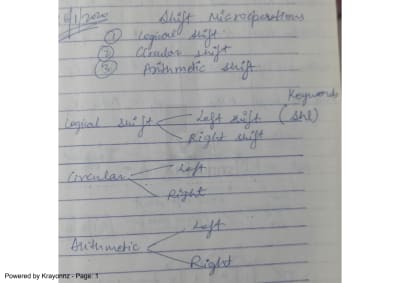 6/1/2020
Shift Microoperations
① Logical shift
② Circular shift
③ Arithmetic shift
Keywords
Logical shift Left shift (Shl)
Right shift
Circular Left
Right
Arithmetic Left
Right
Powered by Krayonnz - Page: 1